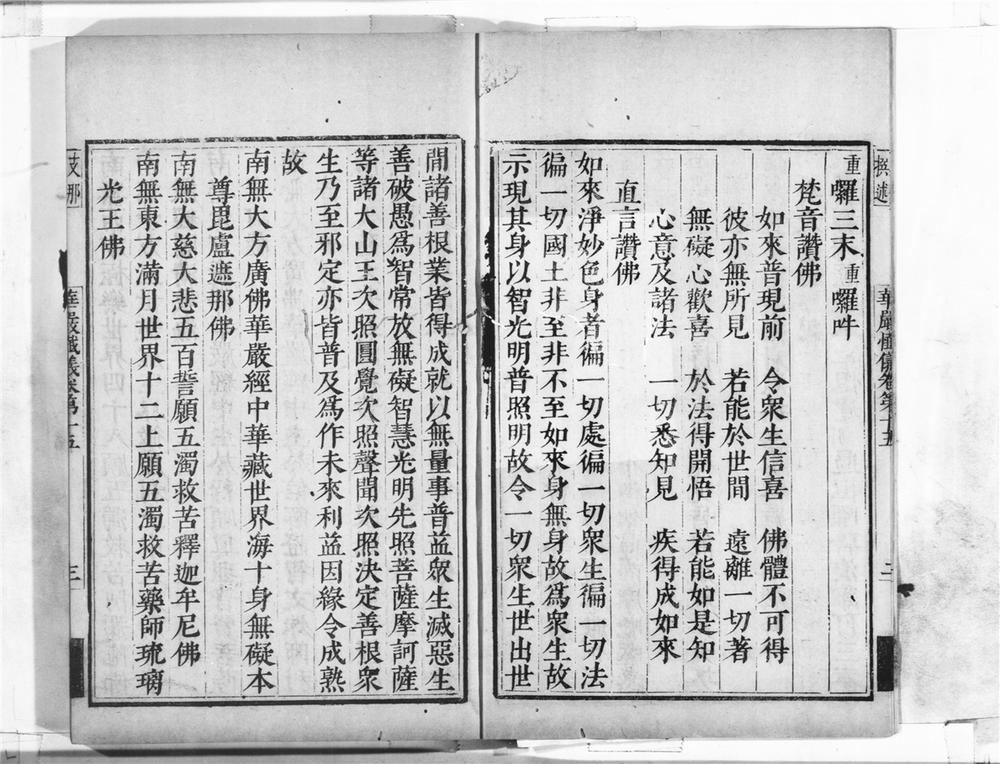 撰述
華嚴懺儀卷第十五
二
重囉三末重囉吽
梵音讚佛
如來普現前　令衆生信喜　佛體不可得
彼亦無所見　若能於世間　遠離一切著
無礙心歡喜　於法得開悟　若能如是知
心意及諸法　一切悉知見　疾得成如來
直言讚佛
如來淨妙色身者徧一切處徧一切衆生徧一切法
徧一切國土非至非不至如來身無身故爲衆生故
示現其身以智光明普照明故令一切衆生世出世
間諸善根業皆得成就以無量事普益衆生滅惡生
善破愚爲智常放無礙智慧光明先照菩薩摩訶薩
等諸大山王次照圓覺次照聲聞次照決定善根衆
生乃至邪定亦皆普及爲作未來利益因緣令成熟
故
南無大方廣佛華嚴經中華藏世界海十身無礙本
尊毘盧遮那佛
南無大慈大悲五百誓願五濁救苦釋迦牟尼佛
南無東方滿月世界十二上願五濁救苦藥師琉璃
光王佛
支那
華嚴懺儀卷第十五
三